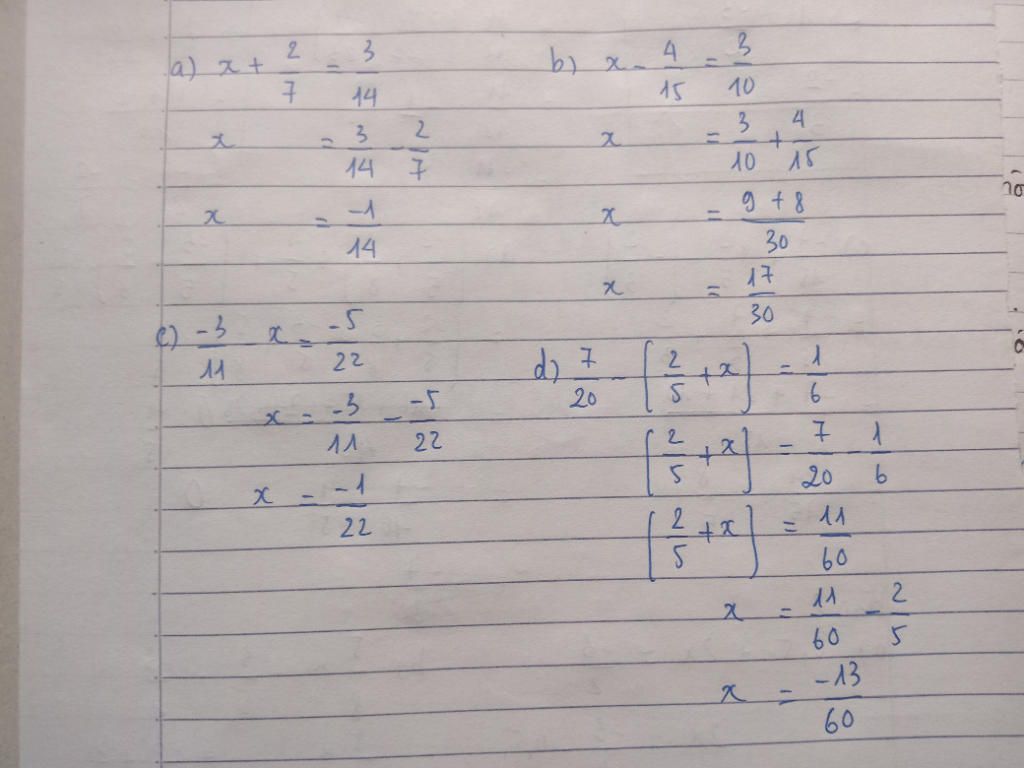 a) x + 2/7 = 3/14
x = 3/14 - 2/7
x = -1/14
b) x - 4/15 = 3/10
x = 3/10 + 4/15
x = (9 + 8)/30
x = 17/30
c) -3/11 - x = -5/22
x = -3/11 - -5/22
x = -1/22
d) 7/20 - [2/5 + x] = 1/6
[2/5 + x] = 7/20 - 1/6
[2/5 + x] = 11/60
x = 11/60 - 2/5
x = -13/60